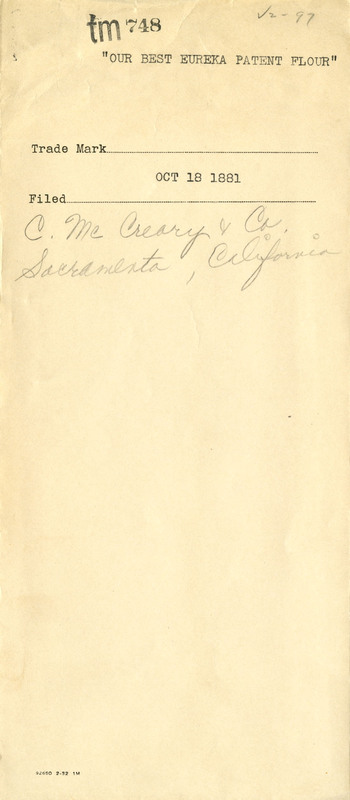 V2-97
tm 748
"OUR BEST EUREKA PATENT FLOUR"
Trade Mark
OCT 18 1881
Filed
C. Mc Creary & Co.
Sacramento, California
2-32 1M